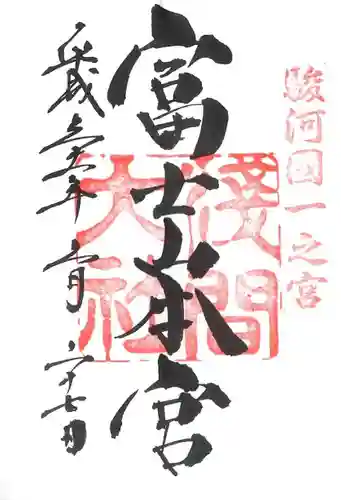 駿河國一之宮
富士山本宮
淺間大社
平成二十年七月二十七日